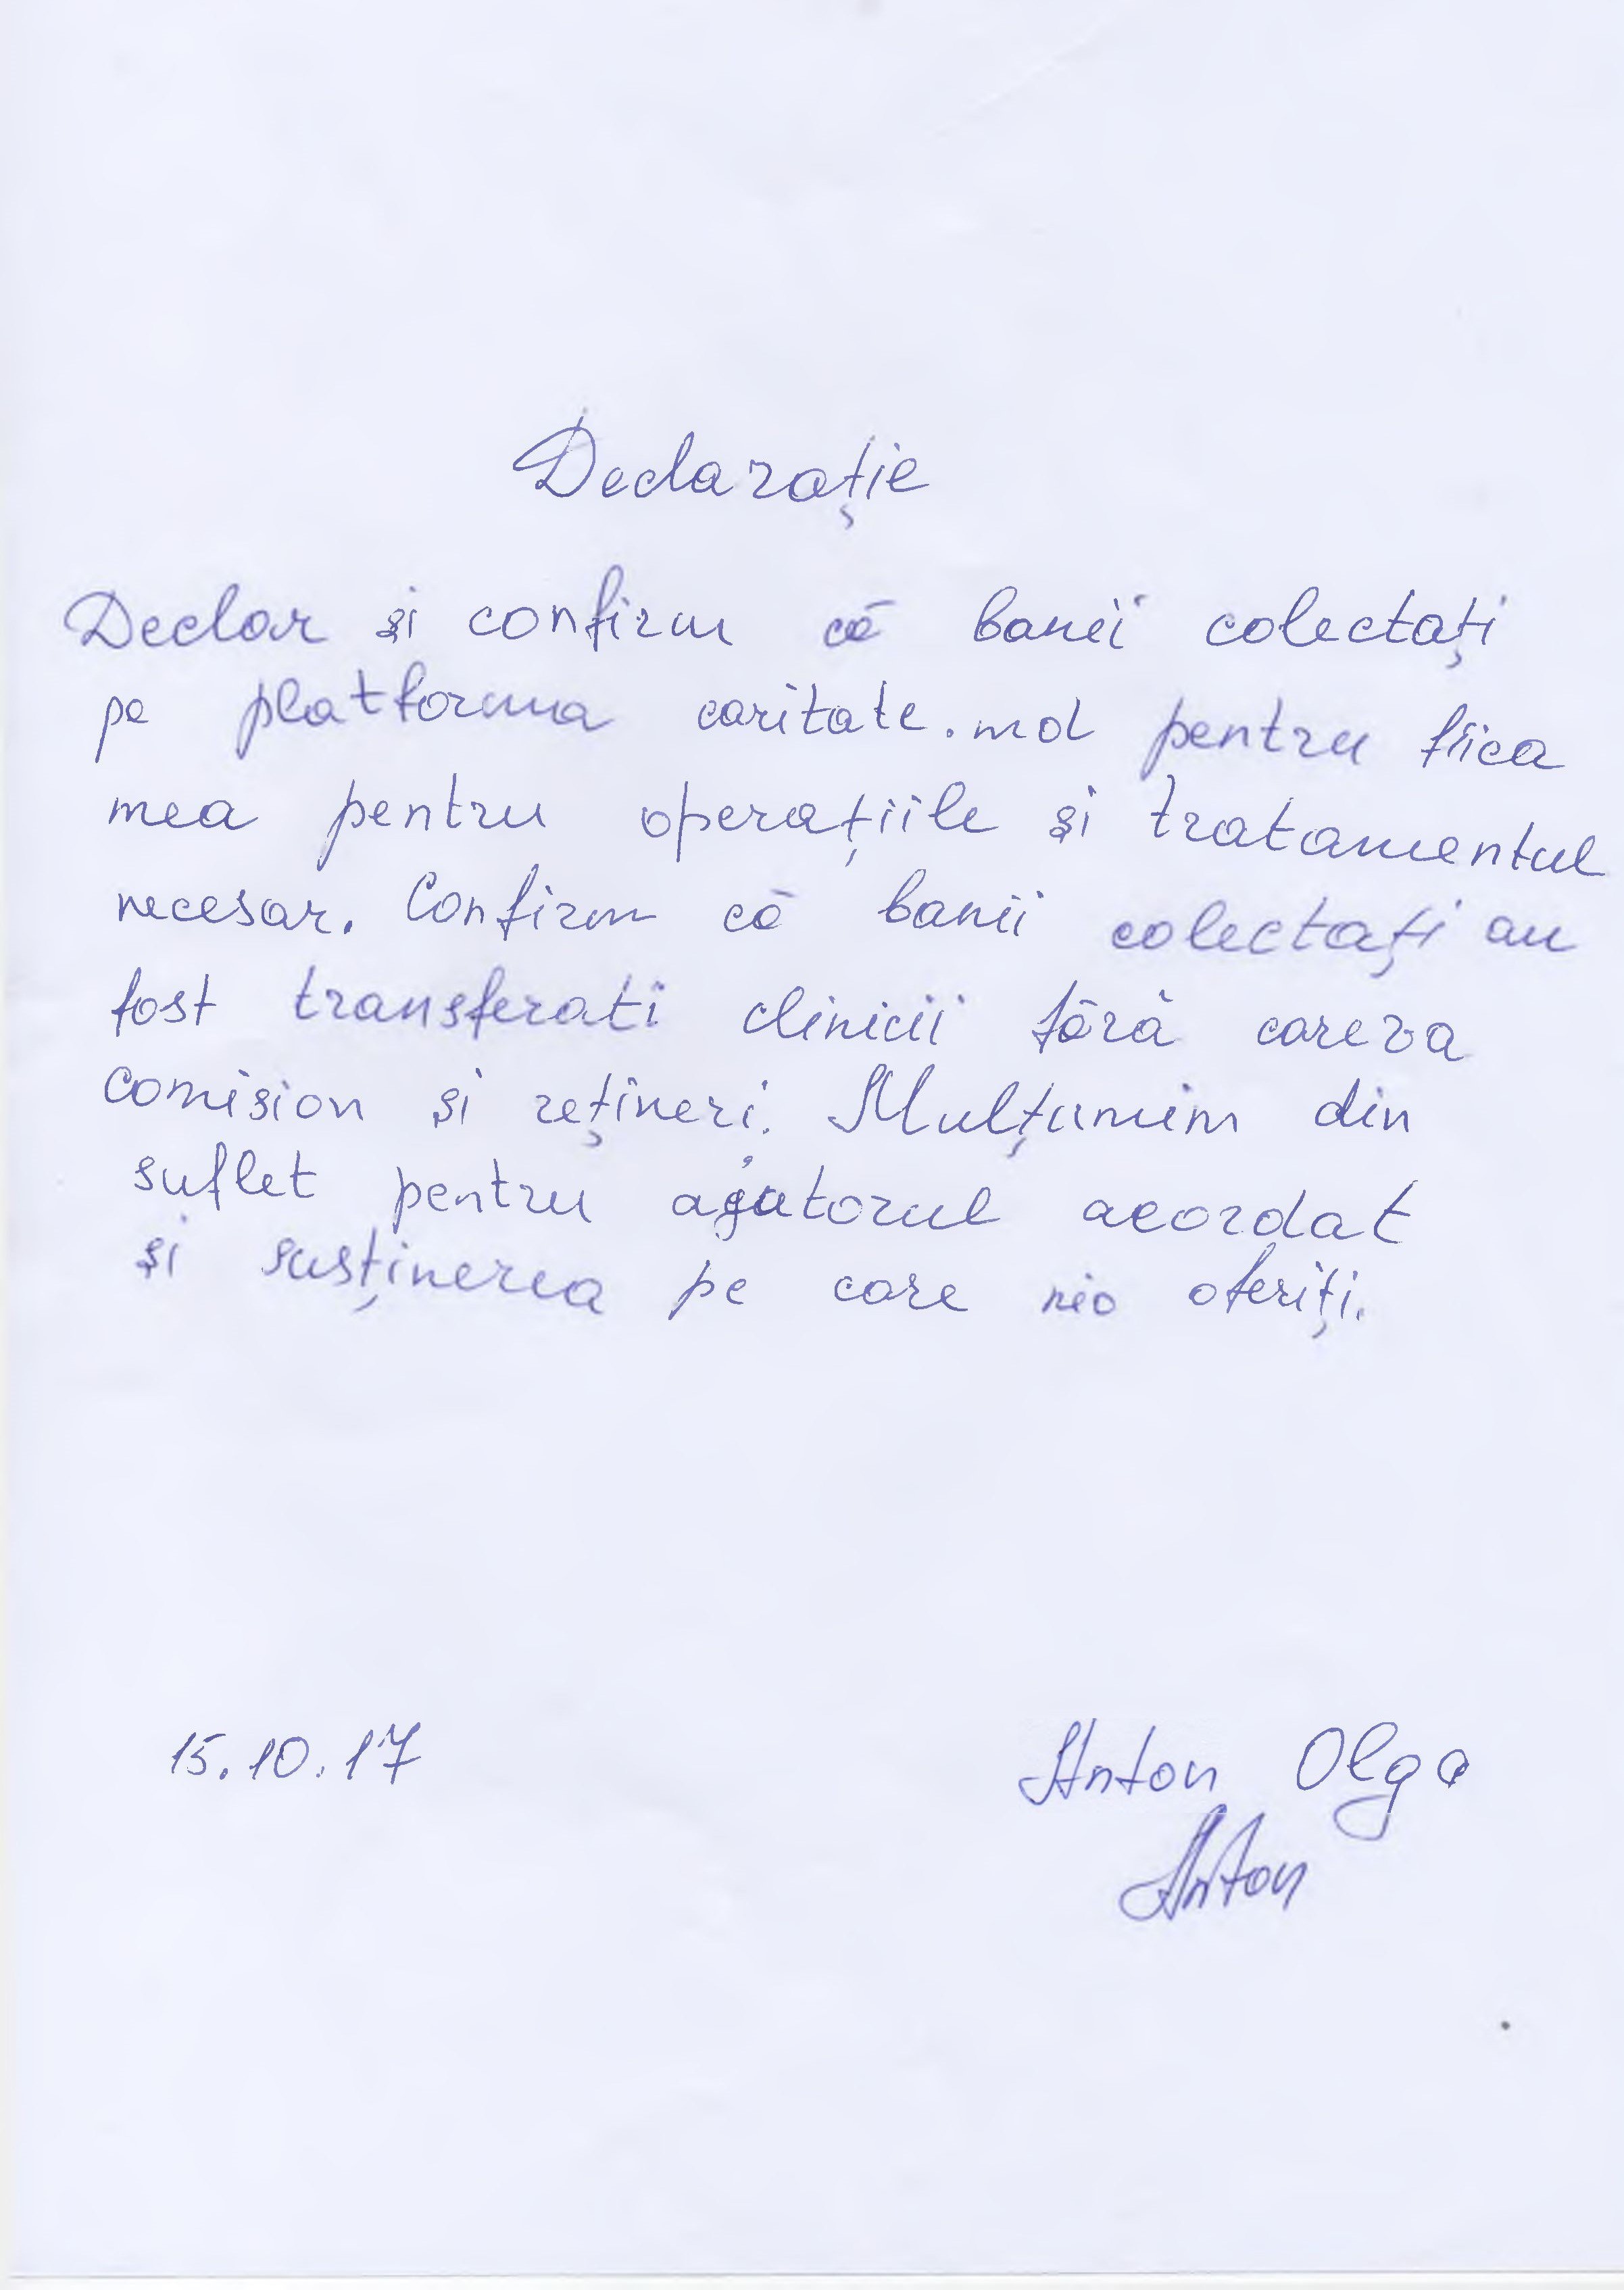 Declarație
Declar și confirm că banii colectați
pe platforma caritate.md pentru fiica
mea pentru operațiile și tratamentul
necesar. Confirm că banii colectați au
fost transferati clinicii fără careva
comision și rețineri. Mulțumim din
suflet pentru ajutorul acordat
și susținerea pe care nio oferiți.
15.10.17
Anton Olga
Anton